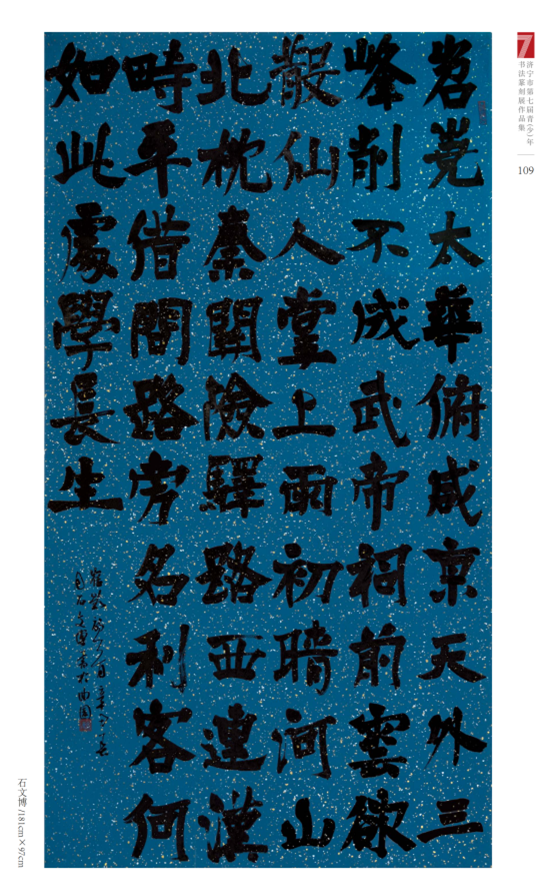 7
济宁市第七届青(少)年
书法篆刻展作品集
109
岧嶤太華俯咸京天外三
峰削不成武帝祠前雲欲
散仙人掌上雨初晴河山
北枕秦關險驛路西連漢
時平借問路旁名利客何
如此處學長生
石文博/181cm×97cm